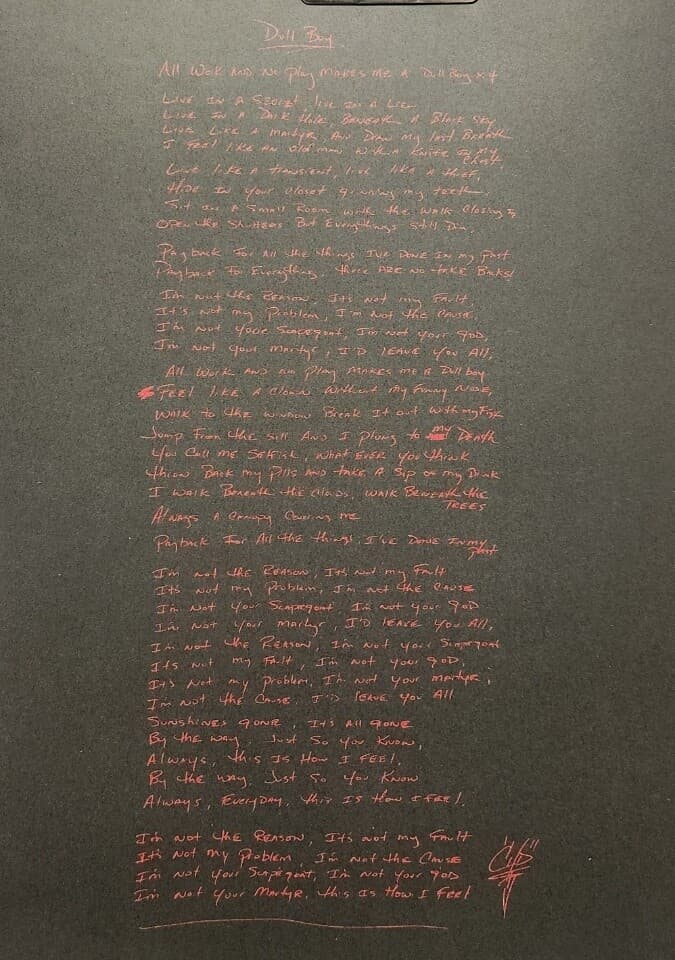 Dull Boy
All Work And No Play Makes Me A Dull Boy x4
Live In A Secret, live in a Lie,
Live In A Dark Hole, Beneath A Black Sky
Live Like a Martyr, And Draw my last Breath
I Feel like an old man with A Knife In my
Chest,
Live like a transient, live like a thief,
Hide In your closet grinning my teeth.
Sit In A Small Room with the Walls Closing In
Open the Shutters But Everythings Still Dim.
Payback For all the things I've Done In my past
Payback For Everything, there are no take Backs!
I'm not the Reason, Its not my Fault,
It's not my Problem, I'm not the Cause,
I'm not your Scapegoat, I'm not your god,
I'm not your martyr, I'D leave you All,
All Work And no Play Makes me A Dull boy
Feel like A Clown Without my Funny Nose,
Walk to the window Break It out with my Fist
Jump From the sill And I plung to my Death
You Call me Selfish, what ever you think
throw Back my Pills And take A Sip of my Drink
I walk Beneath the Clouds, walk Beneath the
Trees
Always a Canopy Covering me
Payback For All the things I've Done In my
past
I'm not the Reason, It's not my Fault
Its not my Problem, I'm not the Cause
I'm not your Scapegoat I'm not your god
I'm not your martyr, I'D leave you All,
I'm not the Reason, I'm not your Scapegoat
Its not my Falt, I'm not your god,
It's not my problem, I'm not your martyr,
I'm not the Cause, I'D leave you All
Sunshines gone, It's all gone
By the way, Just So you Know,
Always, this Is How I Feel.
By the way, Just So you Know
Always, Everyday, this Is How I Feel.
I'm not the Reason, It's not my Fault
It's not my Problem, I'm not the Cause
I'm not your Scapegoat, I'm not your god
I'm not your Martyr, this Is How I Feel